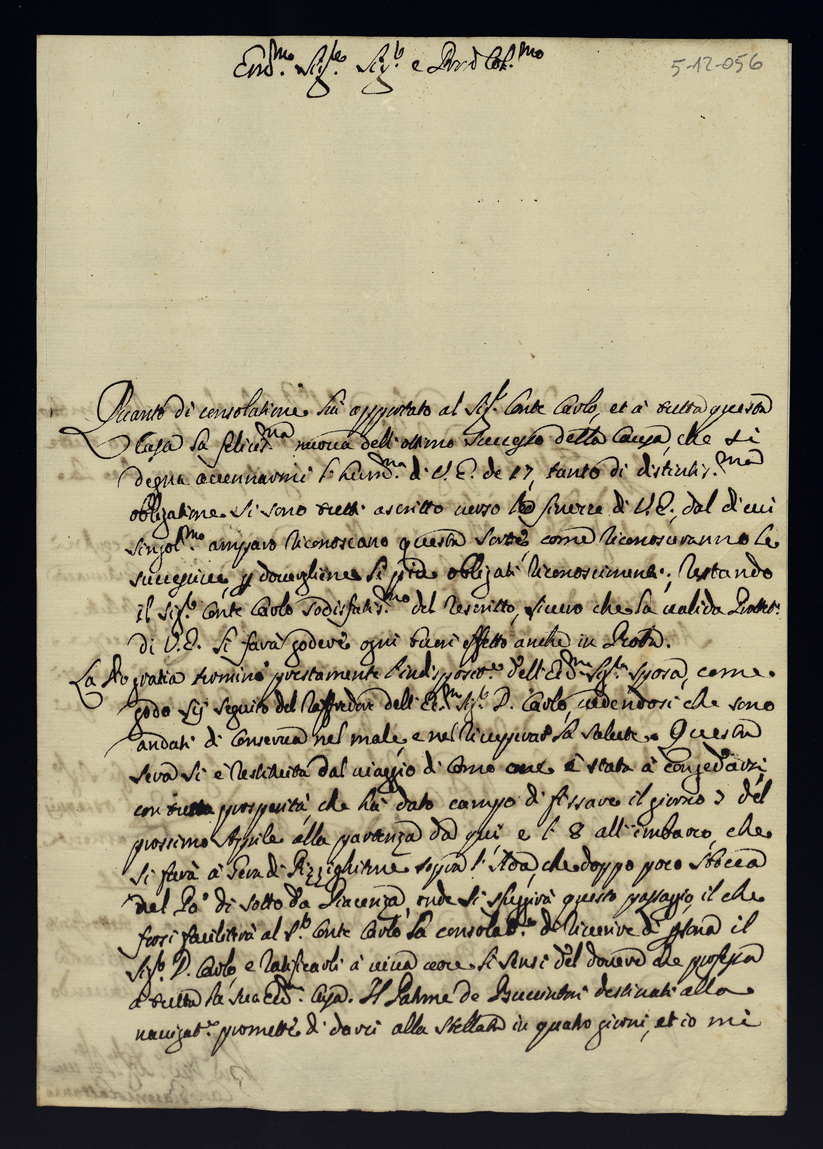 5-12-056
Em.mo Sig.re Sig.r e Pron Col.mo
Quanto di consolatione hà apportato al Sig.r Conte Carlo, et à tutta questa
Casa la felicis.ma nuova dell'ottimo successo della Causa, che si
degna accennarmi l'hum.ma di V.E. de 17, tanto di distintis.ma
obligatione si sono tutti ascritto verso le finezze di V.E., dal di cui
singol.mo amparo riconoscono questa sorte, come riconosceranno le
successive, p si più obligati riconoscimenti; restando
il Sig.r Conte Carlo sodisfatis.mo del rescritto, sicuro che la valida Prottet.
di V.E. li farà godere ogni buon effetto anche in Rota.
La Dio gratia terminò prestamente l'indisposit.e dell'Ec.ma Sig.ra sposa, come
godo sij seguito del raffredore dell'Ec.mo Sig.r D. Carlo, vedendosi che sono
andati di conserva nel male, e nel ricuperat la salute. Questa
sera si è restituita dal viaggio di Como one è stata à congedarsi,
con tutta prosperità, che hà dato campo di fissare il giorno 3 del
prossimo Aprile alla partenza da qui e l'8 all'imbarco, che
si farà à Gera di Pizzighitone sopra l'Adda, che doppo poco sbocca
nel Pò di sotto da Piacenza, onde si sfuggirà questo passaggio, il che
forsi faciliterà al S.r Conte Carlo la consolat.ne di ricevire di psona il
Sig.r D. Carlo, e ratificarli à viva voce li sensi del dovere che professa
à tutta la sua Ec.ma Casa. Il Patrone de Buccintori destinati alla
navigat.ne promette di darci alla Stellata in quatro giorni, et io mi